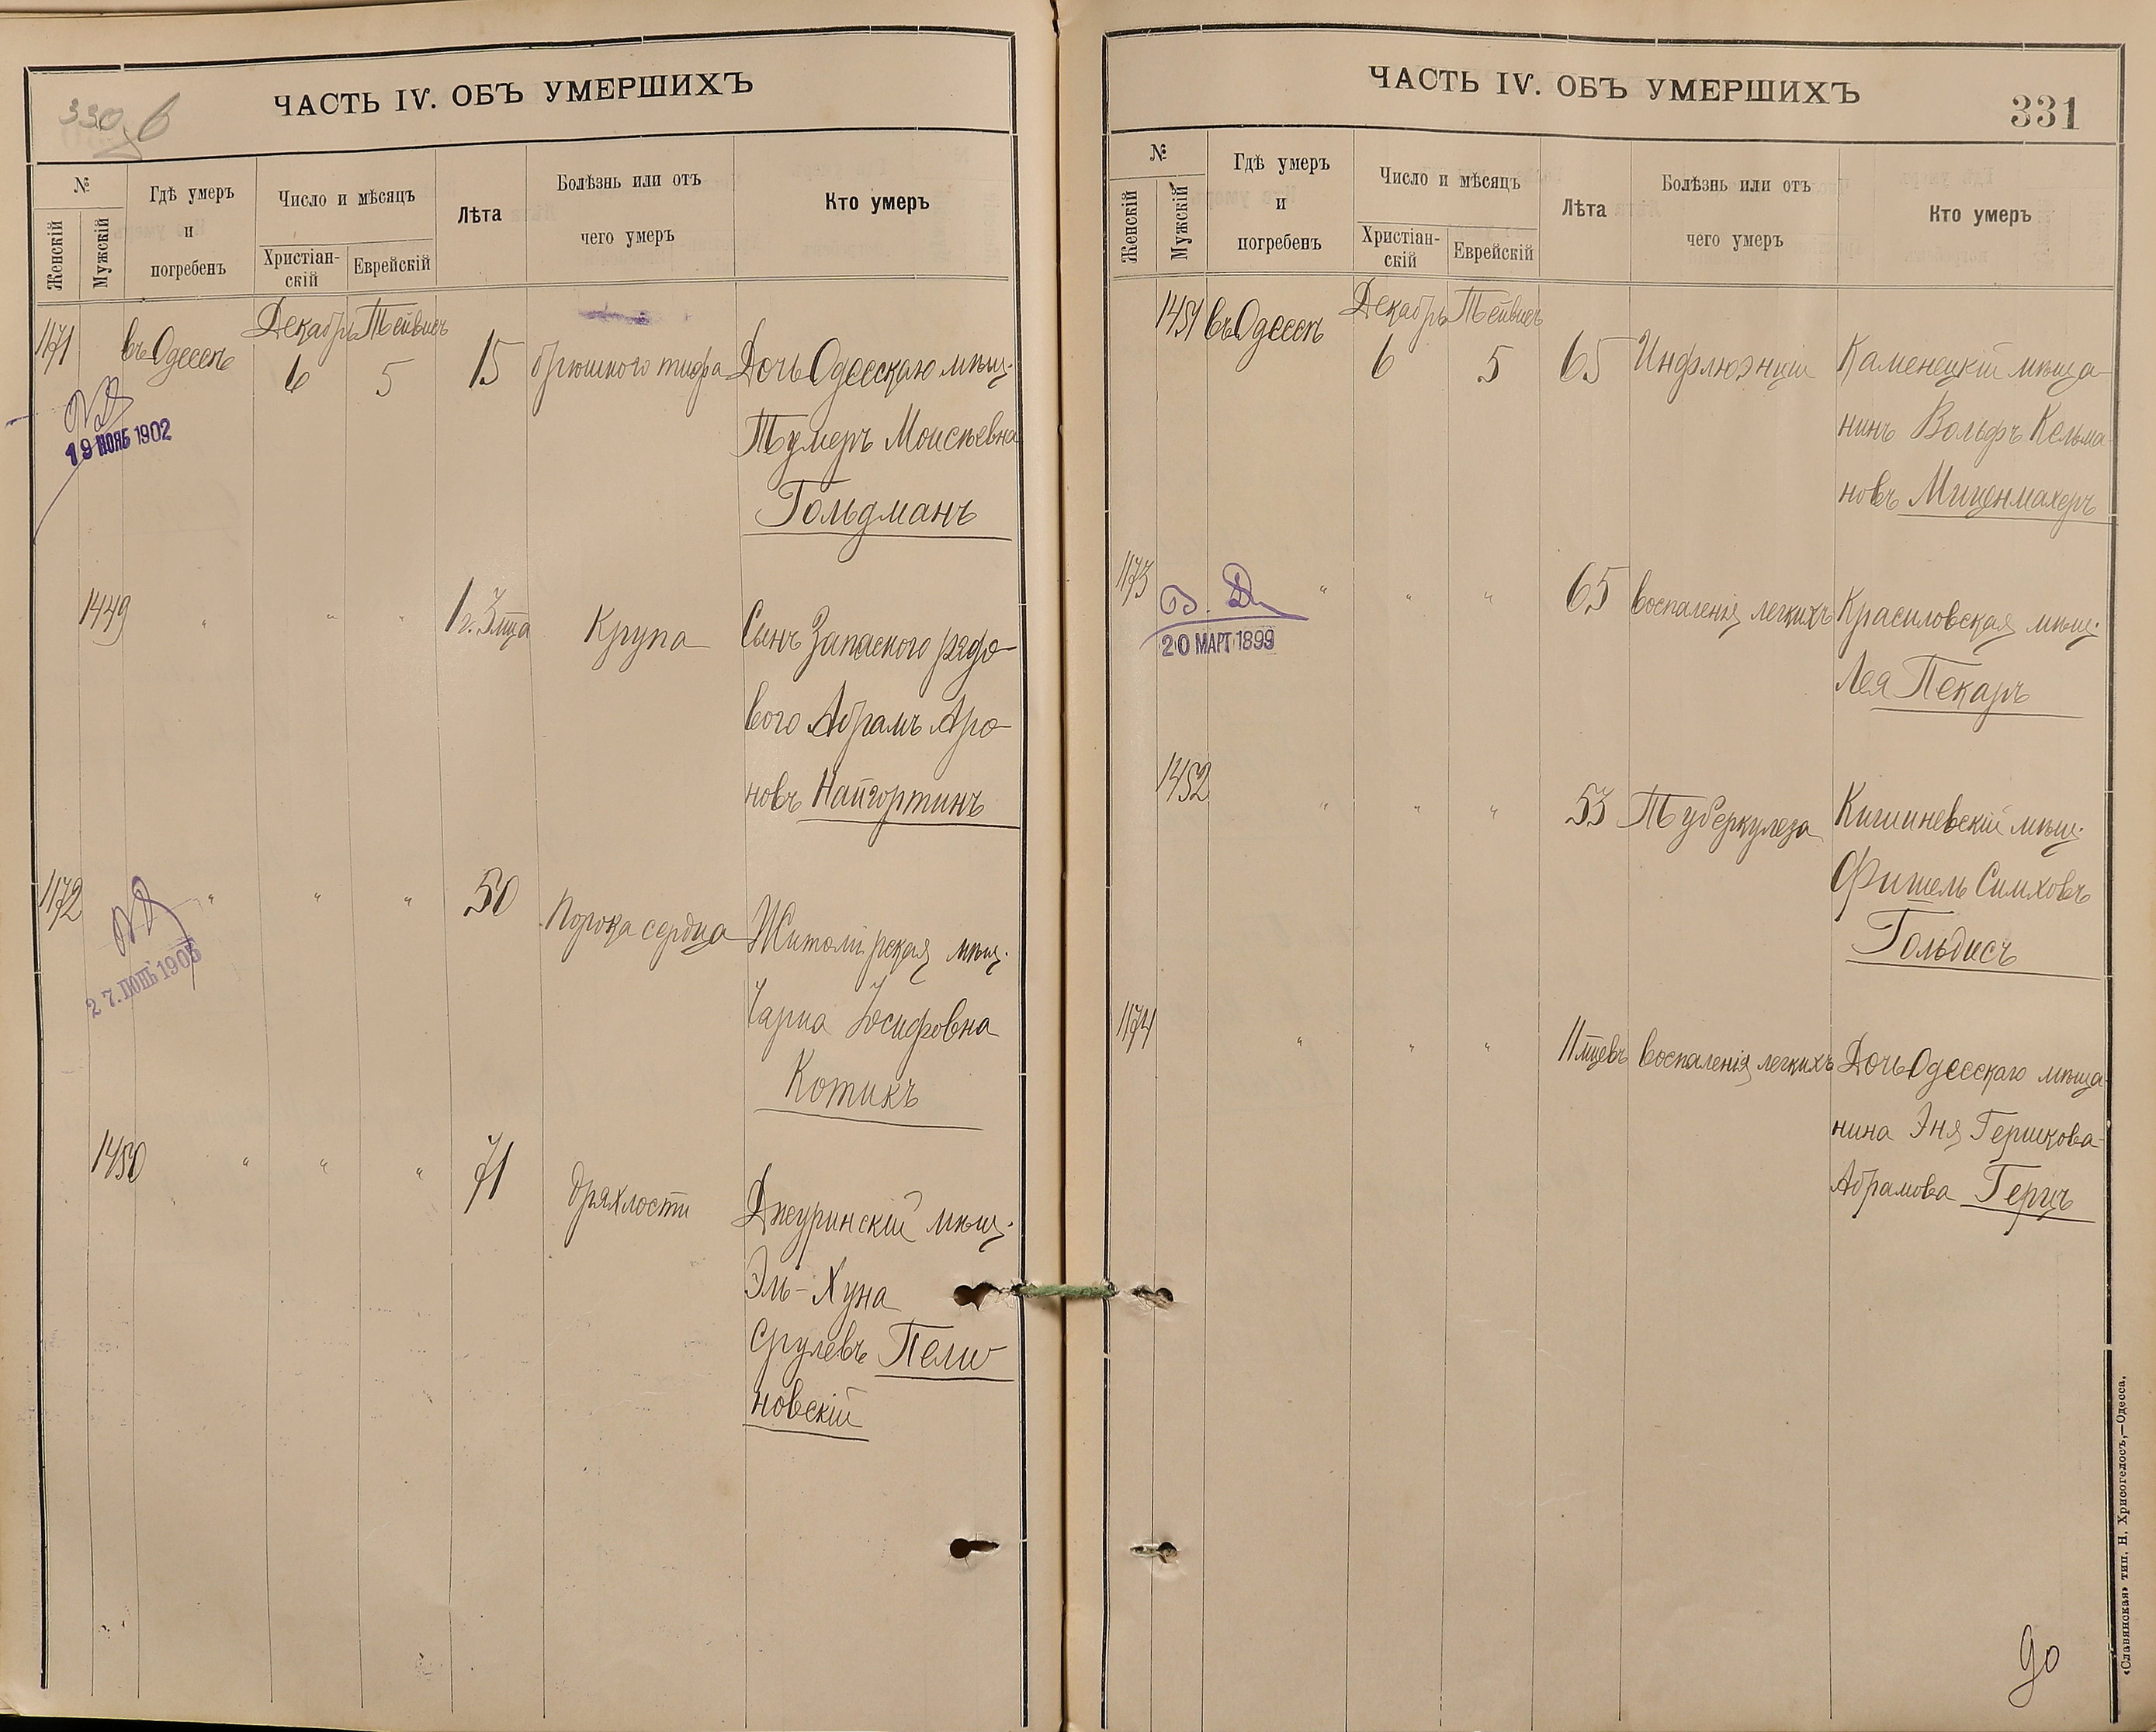 330 б
ЧАСТЬ IV. ОБЪ УМЕРШИХЪ
№
Женскій
Мужскій
Гдѣ умеръ
и
погребенъ
Число и мѣсяцъ
Христіан-
скій
Еврейскій
Лѣта
Болѣзнь или отъ
чего умеръ
Кто умеръ
Декабрь Тейвисъ
1171 въ Одессѣ 6 5 15 брюшного тифа Дочь Одесскаго мѣщ.
Тумеръ Моисѣевна
Гольдманъ
19 НОЯБ 1902
1449 " " " 1 г. 3 мца Крупа Сынъ Запасного рядо-
вого Абрамъ Аро-
новъ Найгортинъ
1172 " " " 50 порока сердца Житомірская мѣщ.
Чарна Іосифовна
Котикъ
27. ІЮНЬ 1905
1450 " " " 71 дряхлости Джуринскій мѣщ.
Эль-Хуна
Срулевъ Пели
новскій
ЧАСТЬ IV. ОБЪ УМЕРШИХЪ
331
№
Женскій
Мужскій
Гдѣ умеръ
и
погребенъ
Число и мѣсяцъ
Христіан-
скій
Еврейскій
Лѣта
Болѣзнь или отъ
чего умеръ
Кто умеръ
Декабрь Тейвисъ
1451 въ Одессѣ 6 5 65 Инфлюэнціи Каменецкій мѣща-
нинъ Вольфъ Кельма-
новъ Миценмахеръ
1173 " " " 65 воспаленія легкихъ Красиловская мѣщ.
Лея Пекаръ
20 МАРТ 1899
1452 " " " 53 Туберкулеза Кишиневскій мѣщ.
Фишель Симховъ
Гольдисъ
1174 " " " 11 мцевъ воспаленія легкихъ Дочь Одесскаго мѣща-
нина Эня Гершкова-
Абрамова Герцъ
до
«Славянская» тип. Н. Хрисогелосъ,—Одесса.